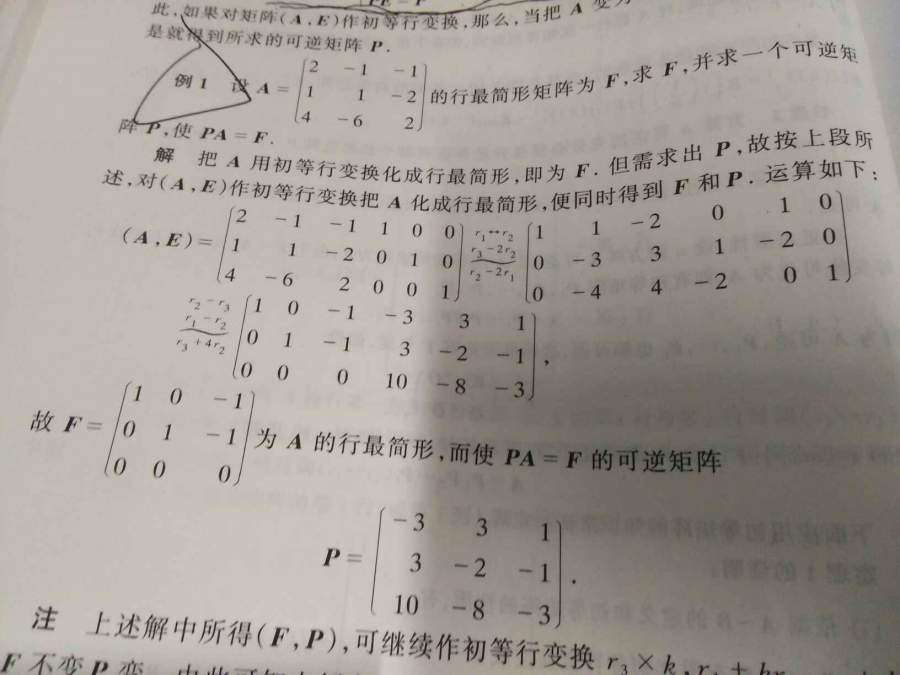 此,如果对矩阵(A,E)作初等行变换,那么,当把 A 变为
是就得到所求的可逆矩阵 P.
例 1 设 A = (2 -1 -1; 1 1 -2; 4 -6 2) 的行最简形矩阵为 F,求 F,并求一个可逆矩
阵 P,使 PA = F.
解 把 A 用初等行变换化成行最简形,即为 F. 但需求出 P,故按上段所
述,对(A,E)作初等行变换把 A 化成行最简形,便同时得到 F 和 P. 运算如下:
(A,E) = (2 -1 -1 1 0 0; 1 1 -2 0 1 0; 4 -6 2 0 0 1) r₁↔r₂ r₃-2r₂ ~ r₂-2r₁ (1 1 -2 0 1 0; 0 -3 3 1 -2 0; 0 -4 4 -2 0 1)
r₂-r₃ r₁-r₂ ~ r₃+4r₂ (1 0 -1 -3 3 1; 0 1 -1 3 -2 -1; 0 0 0 10 -8 -3),
故 F = (1 0 -1; 0 1 -1; 0 0 0) 为 A 的行最简形,而使 PA = F 的可逆矩阵
P = (-3 3 1; 3 -2 -1; 10 -8 -3).
注 上述解中所得(F,P),可继续作初等行变换 r₃×k,
F 不变 P 变